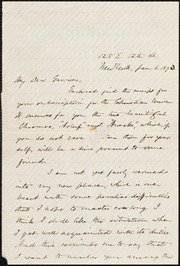 125 E. 12th St.
New York, Jan 6, 1873
My Dear Garrison,
Enclosed find the receipt for
your subscription for the Christian Union.
It secures for you the two beautiful
Chromos, "Asleep" and "Awake," which, if
you do not care them for your-
self, will be a nice present to
some friend.
I am not yet fairly
my new place, which is one
with some peculiar difficulties
that I hope to master soon. I
think I shall like the situation when
I get well acquainted with its duties.
And this reminds me to say that I
want to number you among the